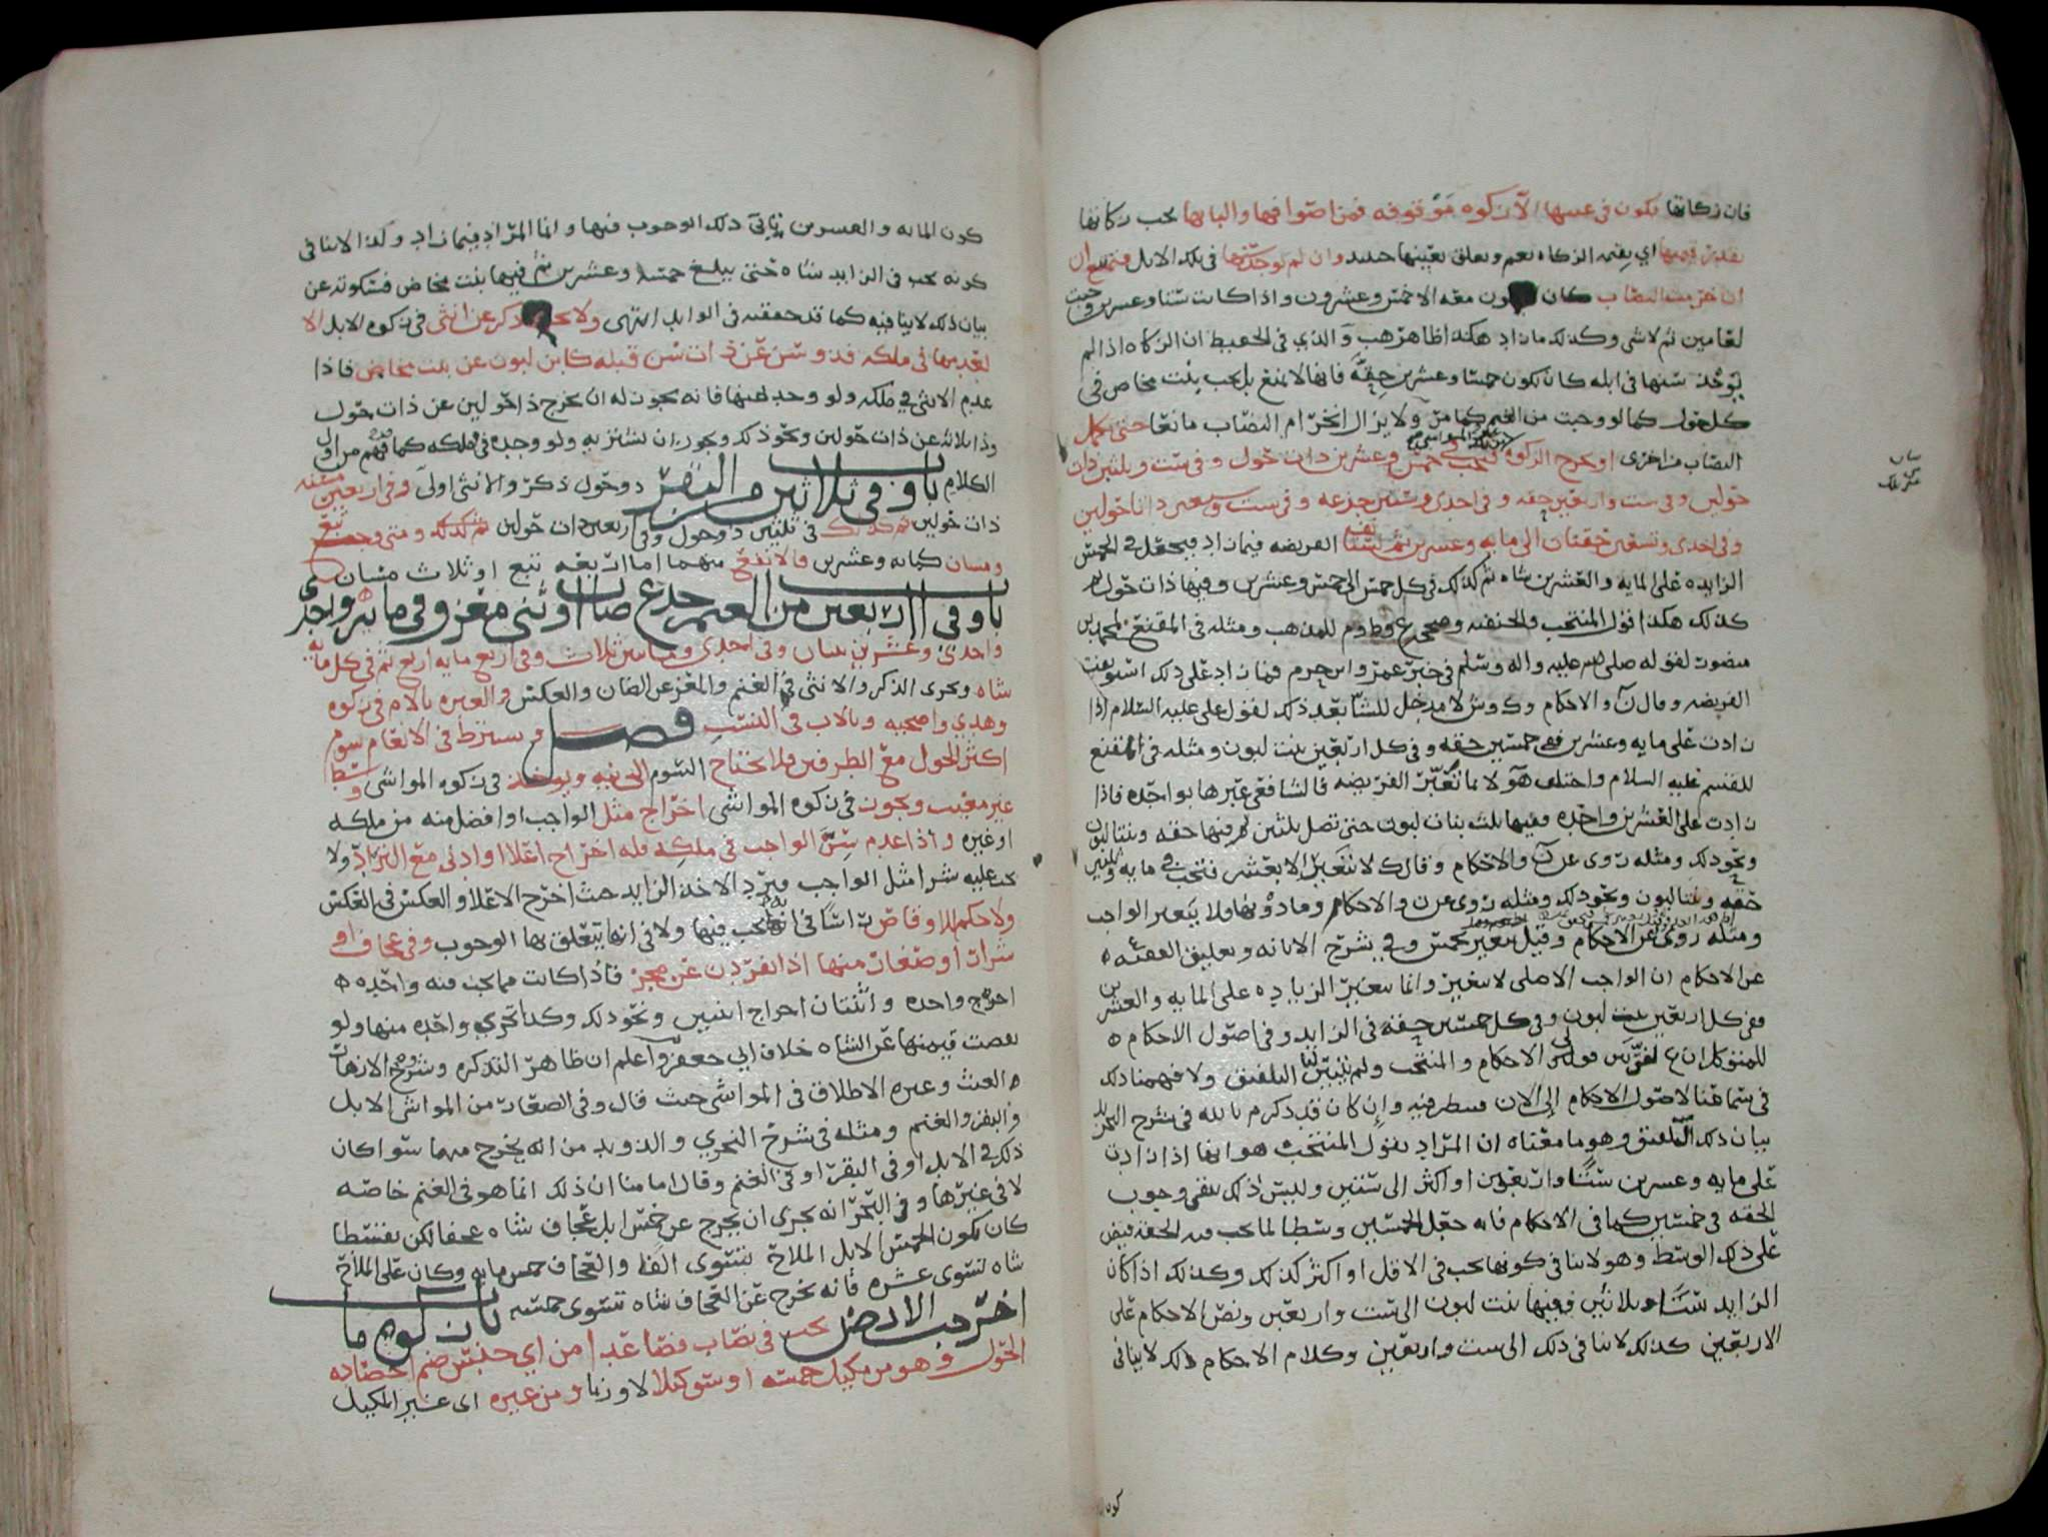 فان زكاتها تكون في عينها الآن زكوه موقوفه فمن اصوافها والبانها يجب زكاتها
بقدر قيمتها اي بقيمة الزكاه نعم وتعلق بعينها حينئذ وان لم توجد فيها في تلك الابل
كان معه الا خمس وعشرون واذا كانت ستا وعشرين وجبت
لعامين ثم لا شي وكذلك ما زاد هكذا ظاهر هب والذي في الحفيظ ان الزكاه اذا لم
يوجد سنها في ابله كان تكون خمسا وعشرين حقة فانها لا تمنع بل يجب بنت مخاض في
كل حول كما لو وجبت من الغنم كما مر ولا يزال انخرام النصاب مانعا حتى يكمل
النصاب من اخرى او يخرج الزكوه فيجب في خمس وعشرين ذات حول وفي ست وثلثين ذات
حولين وفي ست واربعين حقه وفي احدى وستين جذعه وفي ست وسبعين ذاتا حولين
وفي احدى وتسعين حقتان الى مايه وعشرين ثم تستانف الفريضه فيما زاد فيجعل في الخمس
الزايده على المايه والعشرين شاه ثم كذلك في كل خمس الى خمس وعشرين وفيها ذات حول ثم
كذلك هكذا قول المنتخب والحنفيه وصححه ع وط و م للمذهب ومثله في المقنع لمحمد بن
منصور لقوله صلى الله عليه واله وسلم في خبر عمرو ابن حزم فما زاد على ذلك استونفت
الفريضه وقال ن والاحكام و ك وش لا مدخل للشا بعد ذلك لقول علي عليه السلام اذا
زادت على مايه وعشرين ففي خمسين حقه وفي كل اربعين بنت لبون ومثله في المقنع
للقسم عليه السلام واختلف هولا بما تتغير الفريضه قال الشافعي غيرها بواحده فاذا
زادت على العشرين واحده ففيها ثلث بنات لبون حتى تصل ثلثين ثم فيها حقه وبنتا لبون
ونحو ذلك ومثله روى عن ن والاحكام وقال ك لا تتغير الا بعشر فتجب في مايه وثلثين
حقه وبنتا لبون ونحو ذلك ومثله روى عن ن والاحكام وما دونها فلا يتغير الواجب
ومثله روى عن الاحكام وقيل يتغير بخمس وفي شرح الابانه وتعليق الفقيه
عن الاحكام ان الواجب الاصلي لا يتغير وانما يتغير الزياده على المايه والعشرين
ففي كل اربعين بنت لبون وفي كل خمسين حقه في الزايد وفي اصول الاحكام
للمتوكل ان ع لفق بين قولي الاحكام والمنتخب ولم يتبين لنا التلفيق ولا فهمنا ذلك
في سماعنا لاصول الاحكام الى الان فينظر فيه وان كان قد ذكرم بالله في شرح التحرير
بيان ذلك التلفيق وهو ما معناه ان المراد بقول المنتخب هو انها اذا زادت
على مايه وعشرين ستًا واربعين او اكثر الى ستين وليس ذلك ينفي وجوب
الحقه في خمسين كما في الاحكام فانه جعل الخمسين وسطا لما يجب فيه الحقه فنص
على ذلك الوسط وهو لا ينافي كونها تجب في الاقل او اكثر كذلك وكذلك اذا كان
الزايد ستًا وثلاثين ففيها بنت لبون الى ست واربعين ونص الاحكام على
الاربعين كذلك لا ينافي ذلك الى ست واربعين وكلام الاحكام ذلك لا ينافي
كونه
كون المايه والعشرين ينافي ذلك الوجوب فيها وانما المراد فيما زاد وكذا لا ينافي
كونه يجب في الزايد شاه حتى يبلغ خمسا وعشرين ثم فيها بنت مخاض فسكوته عن
بيان ذلك لا ينافيه كما قد حققته في الوابل انتهى ولا يجزي ذكر عن انثى في زكوه الابل الا
لعدمها في ملكه فذو سن عن ذات سن قبله كابن لبون عن بنت مخاض فاذا
عدم الانثى في ملكه ولو وجد ثمنها فانه يجوز له ان يخرج ذا حولين عن ذات حول
وذا ثلاثه عن ذات حولين ونحو ذلك ويجوز ان يشتريه ولو وجده في ملكه كما فهم من اول
الكلام باب وفي ثلاثين من البقر ذو حول ذكر والانثى اولى وفي اربعين مسنه
ذات حولين ثم كذلك في ثلثين ذو حول وفي اربعين ذات حولين ثم كذلك ومتى وجب تبع
ومسان كمايه وعشرين فالانفع منهما اما اربعه تبع او ثلاث مسان
باب وفي الاربعين من الغنم جذع ضان او ثني معز وفي مايه واحدى
واحدى وعشرين شاتان وفي احدى ومايتين ثلاث وفي اربع مايه اربع ثم في كل مايه
شاه ويجزى الذكر والانثى في الغنم والمعز عن الضان والعكس والعبره بالام في زكوه
وهدي واضحيه وبالاب في النسب فصل ويشترط في الانعام سوم
اكثر الحول مع الطرفين فلا يحتاج السوم الى نيه ويوخذ في زكوه المواشي وسطا
غير معيب ويجوز في زكوه المواشي اخراج مثل الواجب او افضل منه من ملكه
او غيره واذا عدم سن الواجب في ملكه فله اخراج اعلا او ادنى مع التراد ولا
يجب عليه شرا مثل الواجب ويرد الاخذ الزايد حيث اخرج الاعلا والعكس في العكس
ولا حكم للاوقاص راسًا في انها تجب فيها ولا في انها يتعلق بها الوجوب وفي عجاف او
شرار او صغار منها اذا انفردت عن مجز فاذا كانت مما يجب فيه واحده
اخرج واحده واثنتان اخراج اثنتين ونحو ذلك وكذا تجزي واحده منها ولو
نقصت قيمتها عن الشاه خلاف ابي جعفر واعلم ان ظاهر التذكره وشرح الازهار
الغيث وغيره الاطلاق في المواشي حيث قال وفي الصغار من المواشي الابل
والبقر والغنم ومثله في شرح النجري والزويد من انه يخرج منها سوا كان
ذلك في الابل او في البقر او في الغنم وقال امامنا ان ذلك انما هو في الغنم خاصه
لا في غيرها وفي البحر انه يجزى ان يخرج عن خمس ابل عجاف شاه عجفا لكن بقسط
كان تكون الخمس الابل الملاح تسوى الفا والعجاف خمس مايه وكان على الملاح
شاه تسوى عشره فانه يخرج عن العجاف شاه تسوى خمسه باب زكوه ما
اخرجت الارض يجب في نصاب فصاعدا من اي جنس ضم احصاده
الحول وهو من مكيل خمسه اوسق كيلا لا وزنا ومن غيره اي غير المكيل